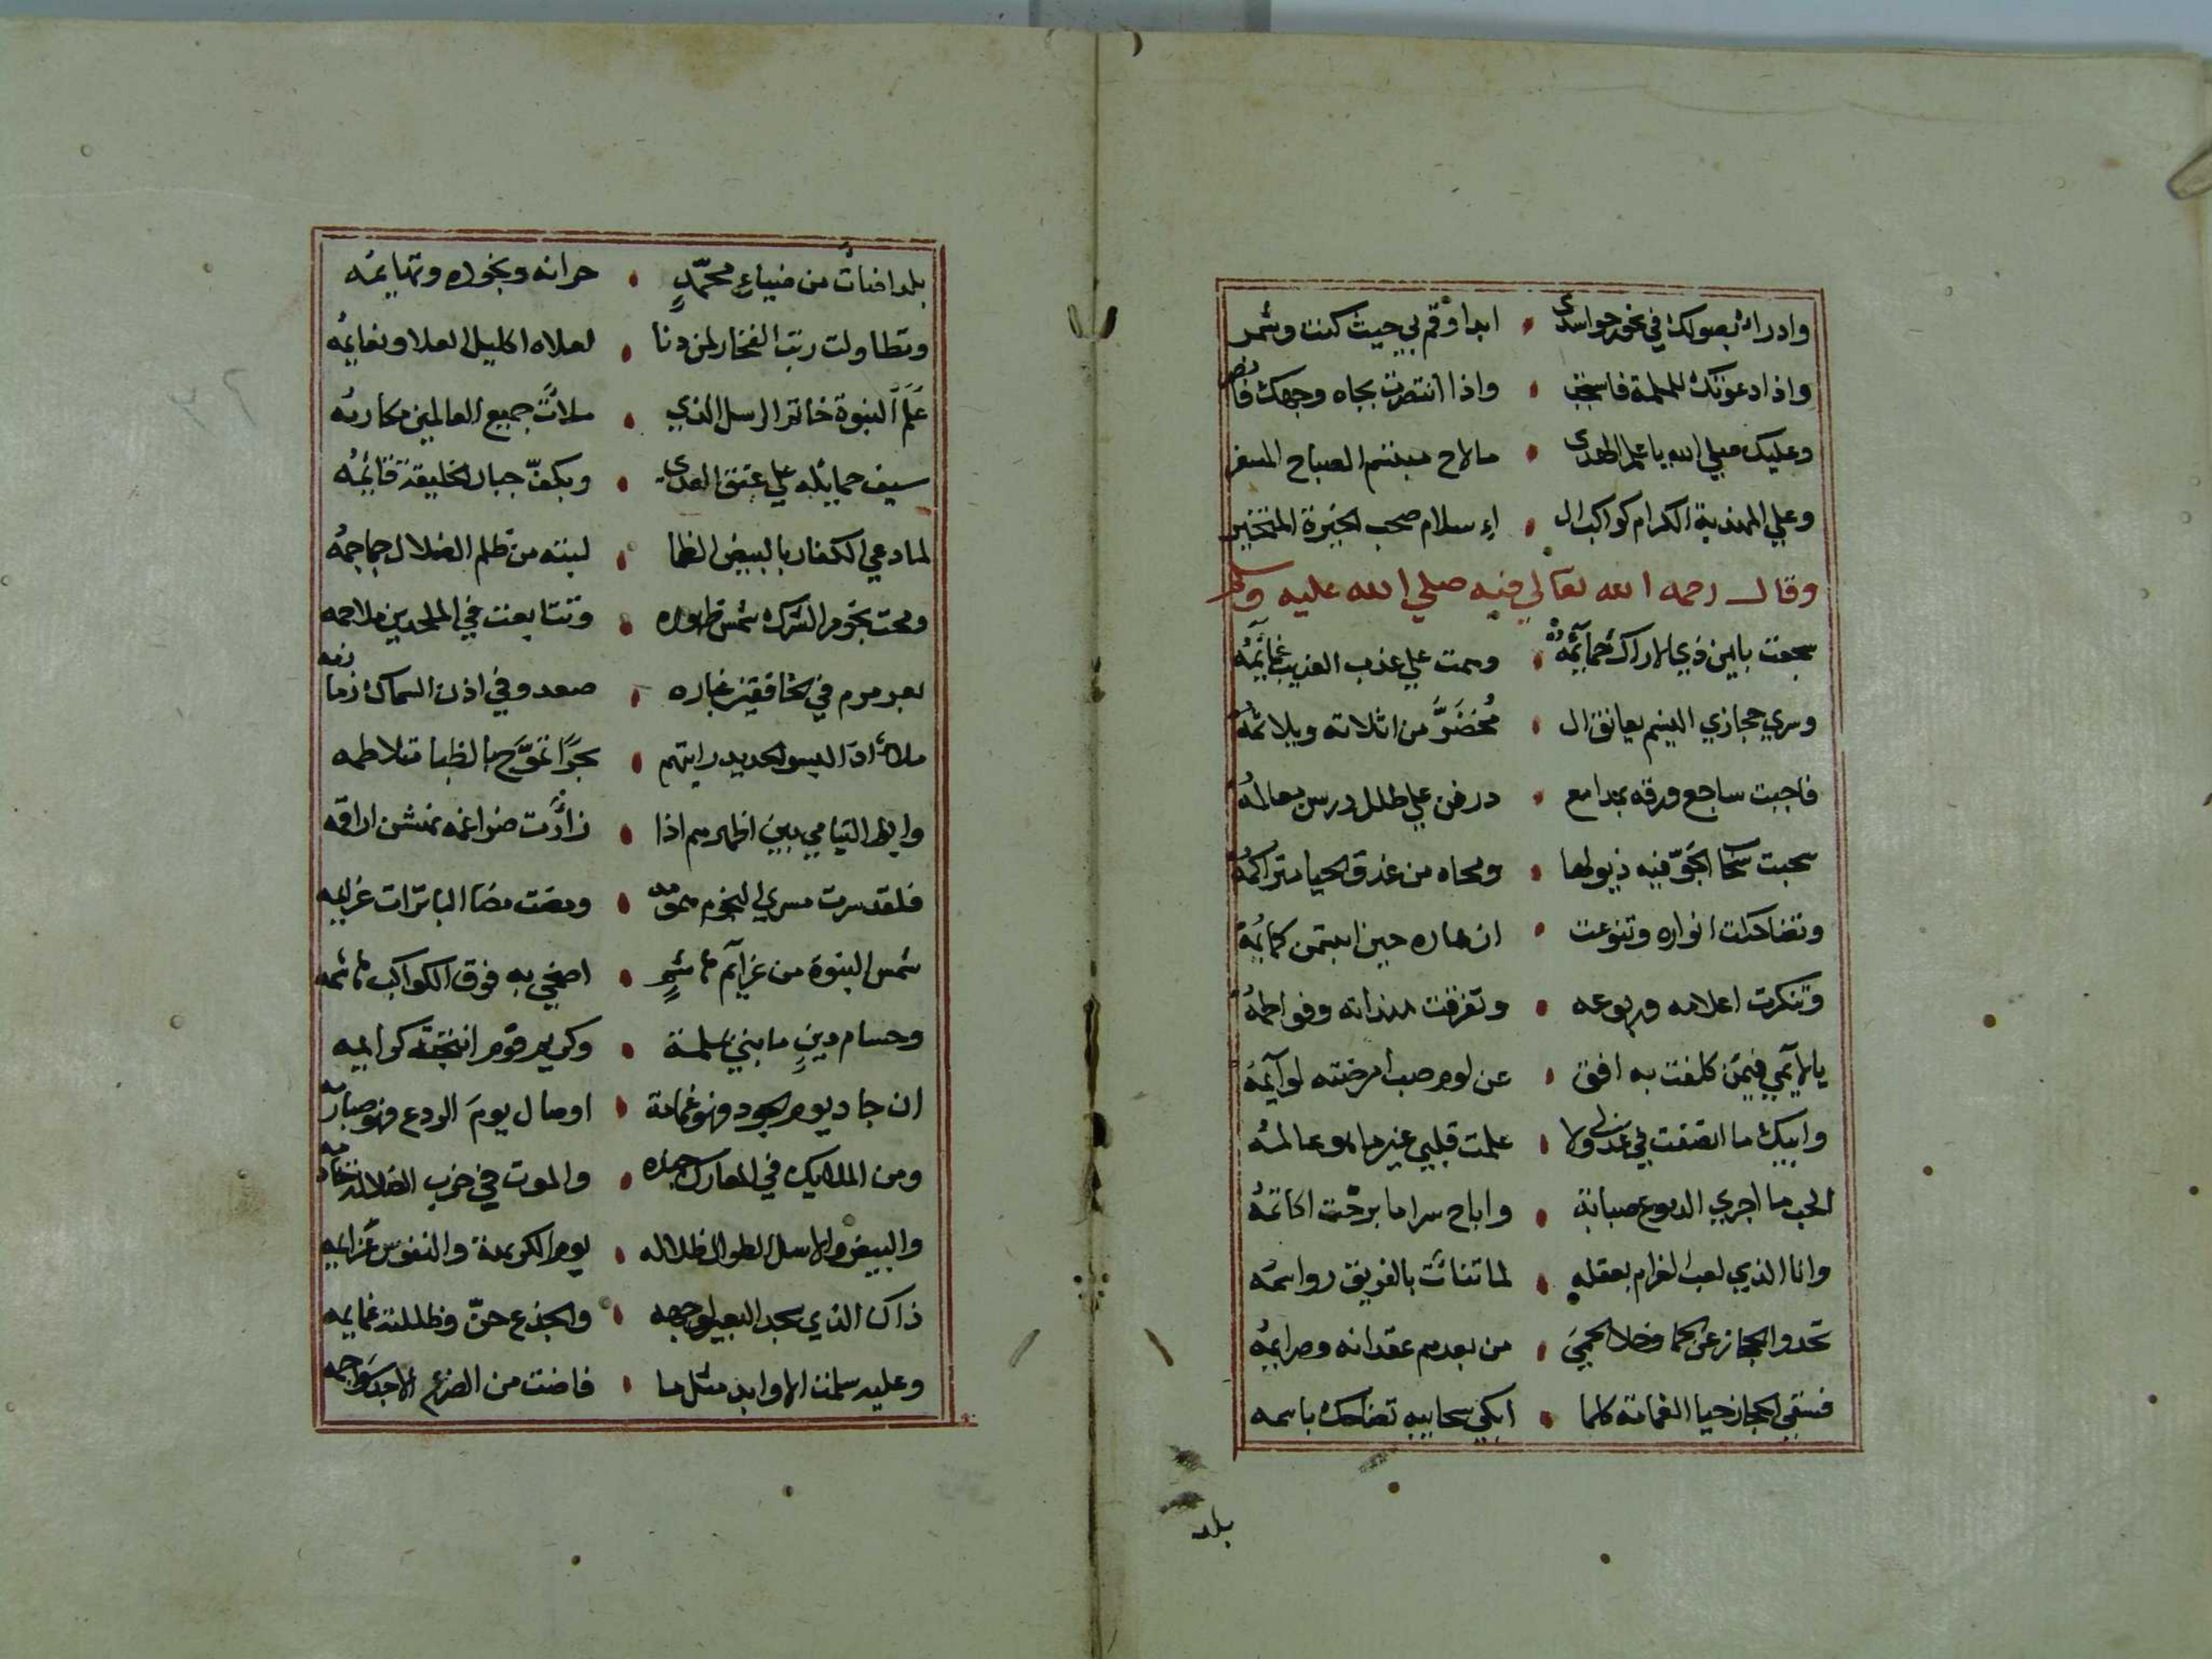 وادراء بصولك في نحور حواسدى • ابدا وقم بي حيث كنت وشمر
واذا دعوتك للملمة فاستجب • واذا انتصرت بجاه وجهك فانصر
وعليك صلى الله يا علم الهدى • ما لاح مبتسم الصباح المسفر
وعلي المهذبة الكرام كواكب ال • إسلام صحب الخيرة المتخير
وقال رحمه الله تعالي فيه صلي الله عليه وسلم
سجعت بايمن ذي الاراك حمآئمه • وهمت علي عذب العذيب غمآئمه
وسري حجازي النسيم يعانق ال • مخضر من اثلاته ويلاثمه
فاجبت ساجع ورقه بمدامع • درفن علي طلل درس معالمه
سحبت سحا الجو فيه ذيولها • ومحاه من غدق الحيا متراكمه
وتضاحكت انواره وتنوعت • ازهاره حين ابتسمن كمائمه
وتنكرت اعلامه وربوعه • وتفرقت هنداته وفواطمه
يا لآيمي فيمن كلفت به افق • عن لوم صب امرضته لوآيمه
وابيك ما انصفت في عذلي ولا • علمت قلبي غير ما هو عالمه
الحب ما اجري الدموع صبابة • واباح سرا ما برحت اكاتمه
وانا الذي لعب الغرام بعقله • لما تنائت بالفريق رواسمه
تحدوا الحجاز عن الحما وخلا الحمي • من بعدهم عقداته وصرايمه
فسقي الحجاز حيا الغمامة كلما • ابكي سحايبه تضاحك باسمه
بلد
بلد اضائت من ضياء محمد • حراته ونجوده وتهايمه
وتطاولت رتب الفخار لمن دنا • لعلاه اكليل العلا ونعايمه
علم النبوة خاتم الرسل الذي • ملأت جميع العالمين مكارمه
سيف حمايله علي عتق الهدى • وبكف جبار الخليقة قائمه
لما دعي الكفار بالبيض الظما • لبته من ظلم الضلال جماجمه
ومحت نجوم الشرك شمس ظهوره • وتتابعت في الملحدين ملاحمه
بعرمرم في الخافقين غباره • صعد وفي اذن السماك زمازمه
ملأ اذا لبسوا الحديد رايتهم • بحرًا تموج بالظبا متلاطمه
وابو اليتامي بين اظهرهم اذا • زأرت ضراغمه نمتشن اراقمه
فلقد سرت مسري النجوم همومه • ومضت مضا الباترات عزايمه
شمس النبوة من عزآيم هاشم • اضحي به فوق الكواكب هاشمه
وحسام دين ما بني سلمة • وكريم قوم انتجبته كرايمه
ان جاد يوم الجود فهو غمامة • او صال يوم الروع فهو صبارمه
ومن الملايك في المعارك جنده • والموت في حزب الضلالة خادمه
والبيض والاسل الطوال ظلاله • يوم الكريهة والنفوس غنايمه
ذاك الذي سجد البعير لوجهه • والجذع حن وظللته غمايمه
وعليه سلمت الاوابد مثل ما • فاضت من الضرع الاجد سواجمه